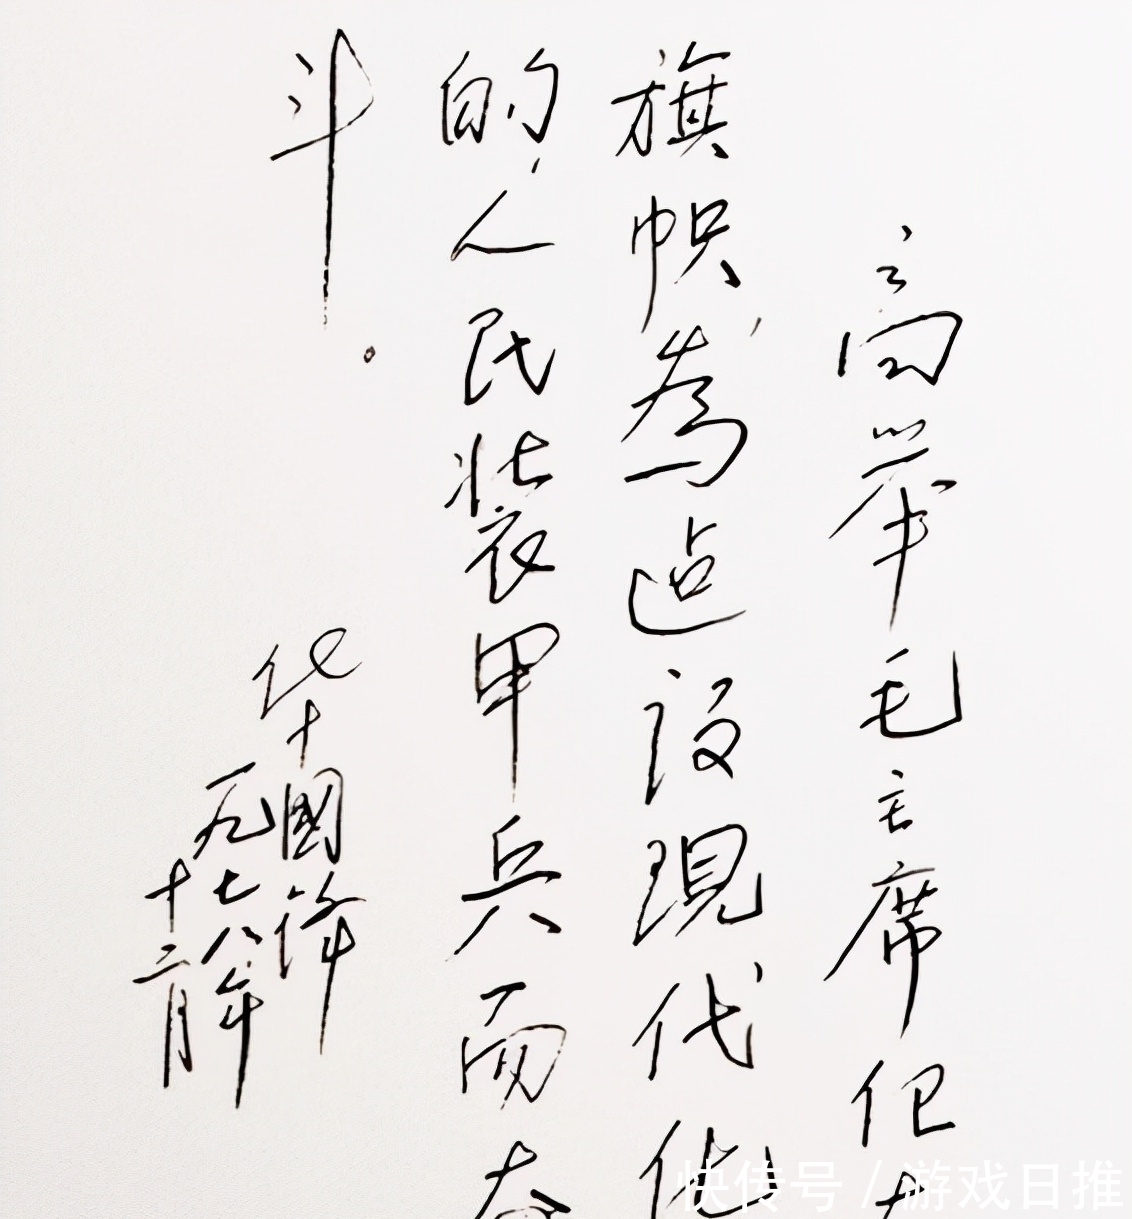 高举毛主席伟大
旗帜為迠设現代化
的人民装甲兵而奋
斗。
华國锋
一九七八年
十二月
快传号 / 游戏日推